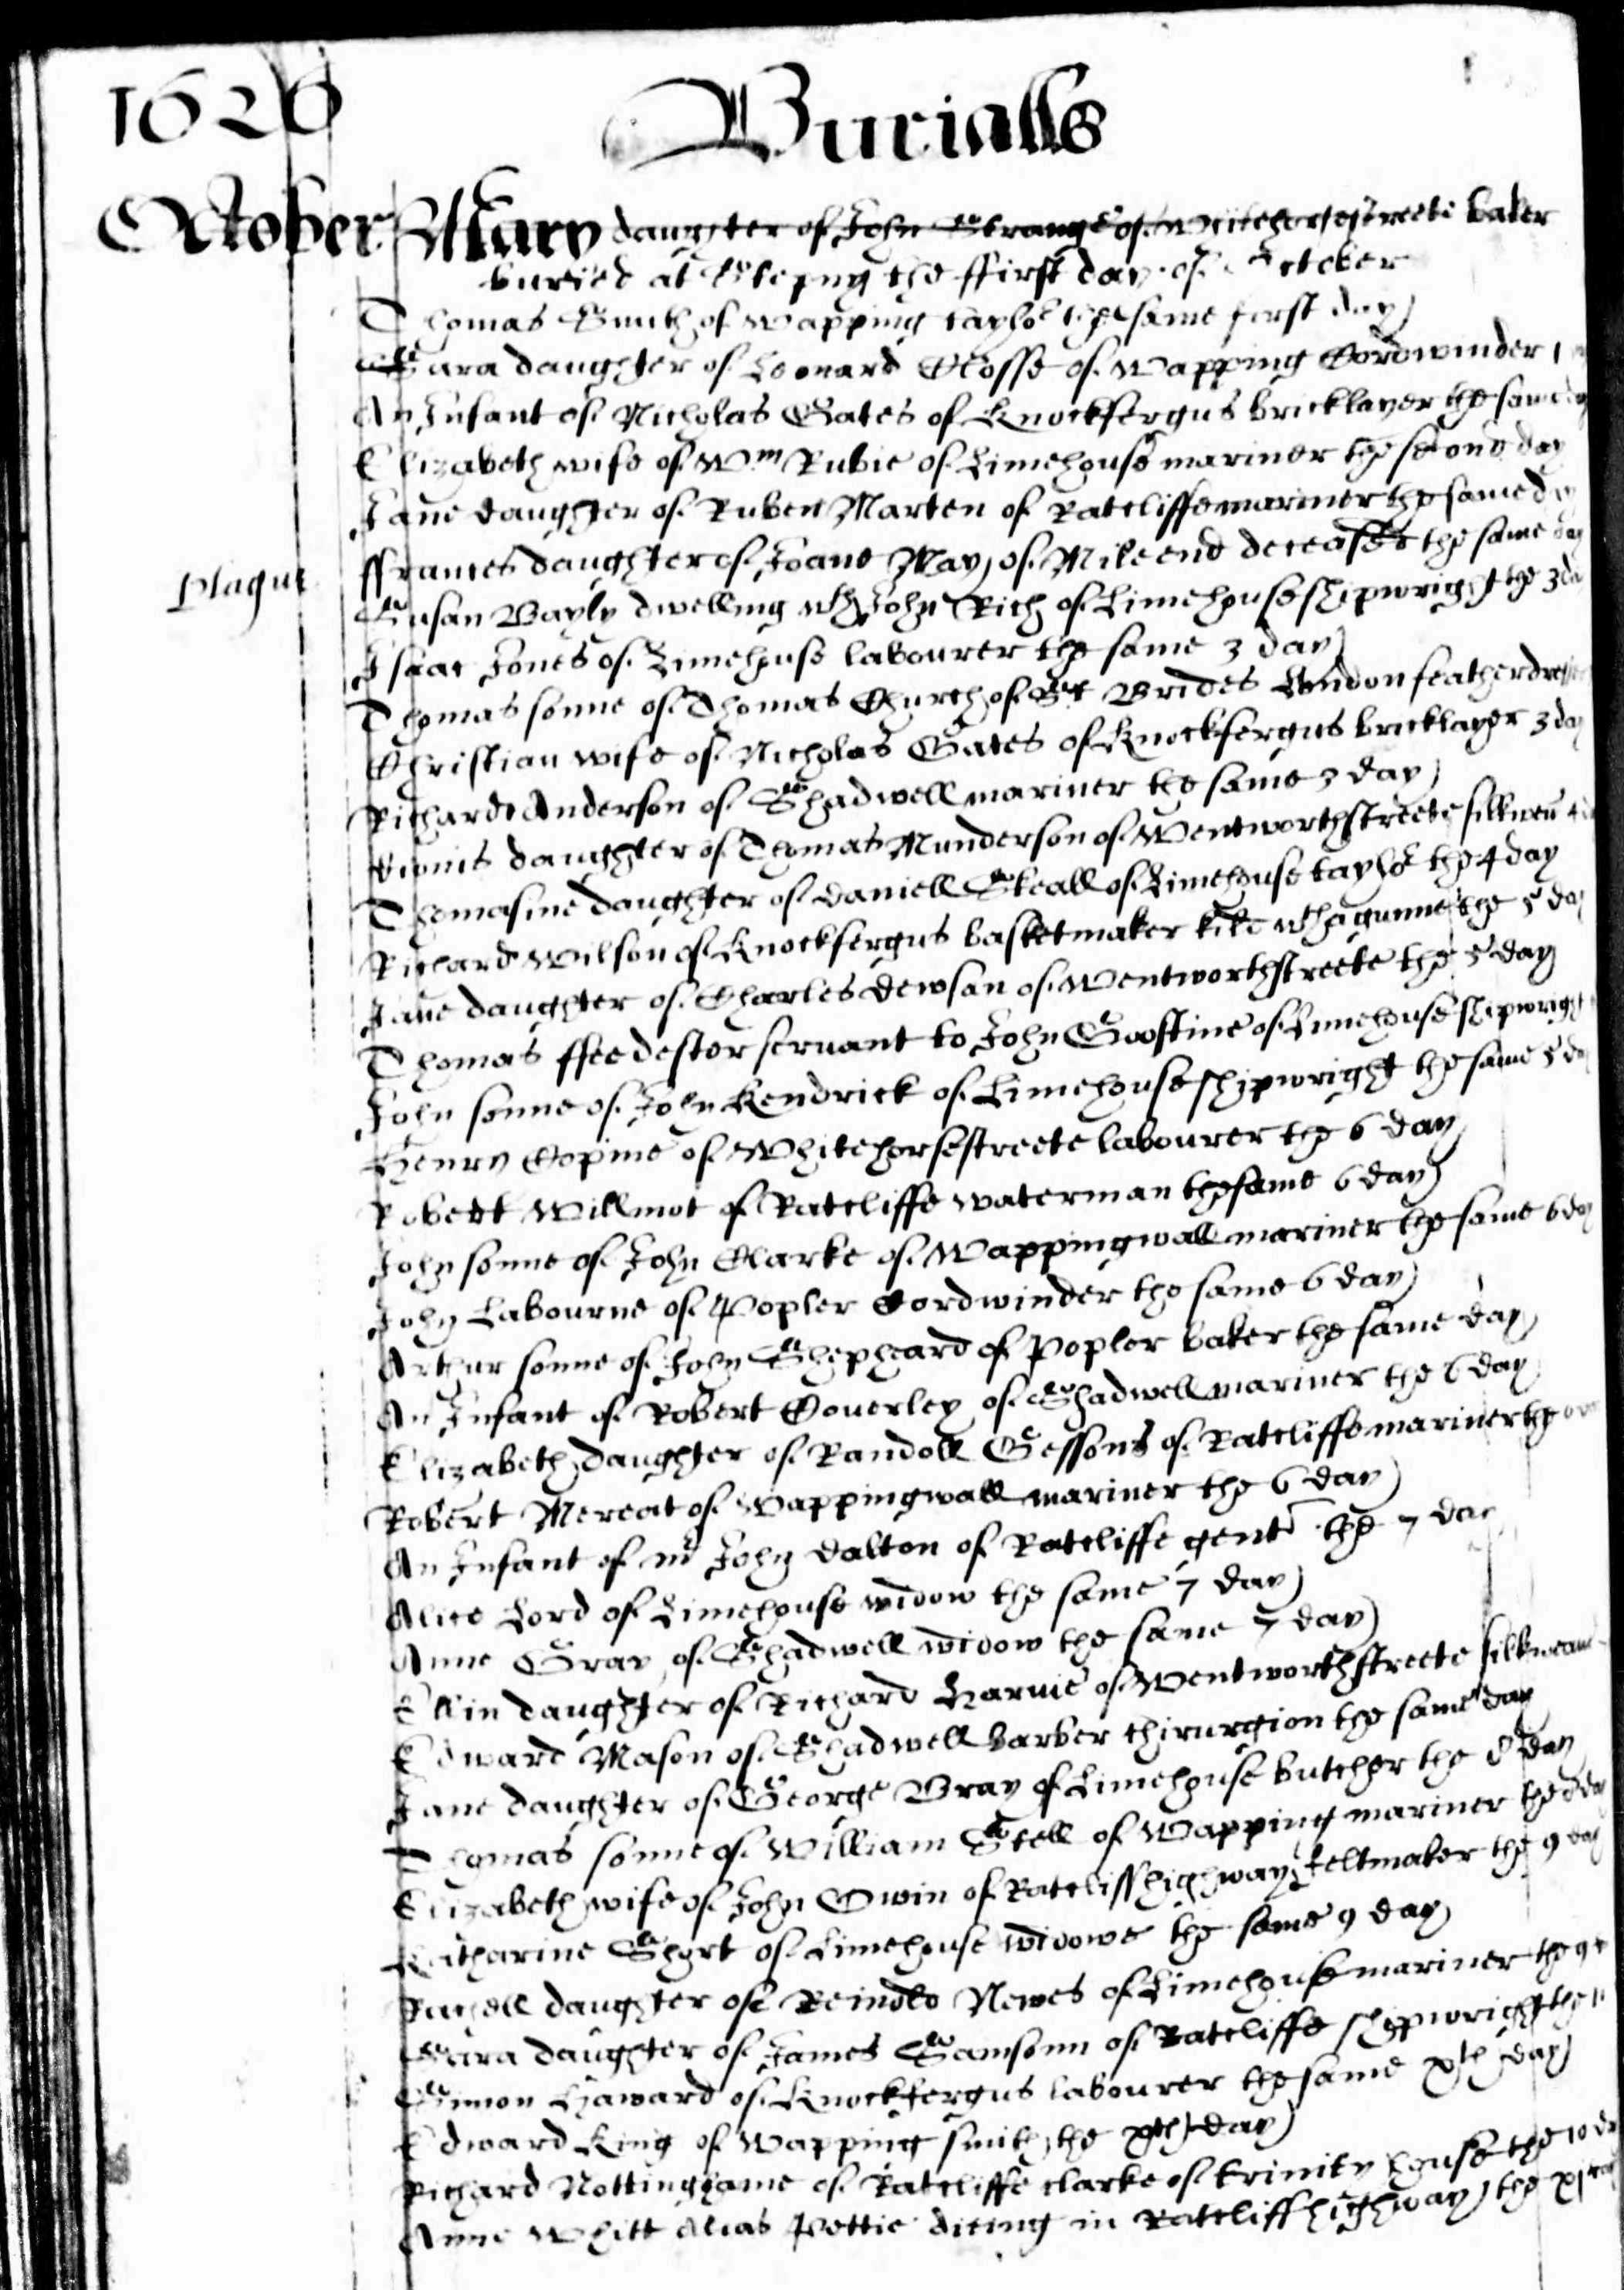 1626
Burialls
October Mary daughter of John Strange of Whitehorsestreete baker
buried at Stepny the ffirst day of October
Thomas Smith of Wapping taylor the same first day
Sara daughter of Leonard Crosse of Wapping Cordwinder 1
An Infant of Nicholas Gates of Knockfergus bricklayer the same day
Elizabeth wife of Wm Rubie of Limehouse mariner the second day
Jane daughter of Ruben Marten of Ratcliffe mariner the same day
ffrances daughter of Joane May of Mile end deceased the same day
Plague
Susan Bayly dwelling wth John Rich of Limehouse shipwright the 3 da
Isaac Jones of Limehouse labourer the same 3 day
Thomas sonne of Thomas Church of St Brides London featherdresser
Christian wife of Nicholas Gates of Knockfergus bricklayer 3 day
Richard Anderson of Shadwell mariner the same 3 day
daughter of Thomas Munderson of Wentworthstreete silkwea 4
Thomasine daughter of Daniell Skeall of Limehouse taylor the 4 day
Richard Wilson of Knockfergus basketmaker kild wth a gunne the 5 day
Jane daughter of Charles Dewsan of Wentworthstreete the 5 day
Thomas servant to John Goostine of Limehouse shipwright
John sonne of John Kendrick of Limehouse shipwright the same 5 day
Henry Copine of Whitehorsestreete labourer the 6 day
Robert Willmot of Ratcliffe waterman the same 6 day
John sonne of John Clarke of Wappingwall mariner the same 6 day
John Labourne of Popler Cordwinder the same 6 day
Arthur sonne of John Shepheard of Popler baker the same day
An Infant of Robert Coverley of Shadwell mariner the 6 day
Elizabeth daughter of Randoll Sessons of Ratcliffe mariner the
Robert Mereat of Wappingwall mariner the 6 day
An Infant of mr John Dalton of Ratcliffe gent the 7 day
Alice Lord of Limehouse widow the same 7 day
Anne Gray of Shadwell widow the same 7 day
Ellin daughter of Richard Harvie of Wentworthstreete silkweaver
Edward Mason of Shadwell barber chirurgion the same day
Jane daughter of George Bray of Limehouse butcher the 8 day
Thomas sonne of William Stell of Wapping mariner the 8 day
Elizabeth wife of John Owin of Ratcliff highway feltmaker the 9 day
Katharine Short of Limehouse widowe the same 9 day
Rachell daughter of Reinold Newes of Limehouse mariner the 9
Sara daughter of James Samsonn of Ratcliffe shipwright the
Simon Haward of Knockfergus labourer the same xth day
Edward King of Wapping smith the xth day
Richard Nottinghame of Ratcliffe clarke of trinity house the 10 da
Anne Whitt alias Pettie dieing in Ratcliff highway the